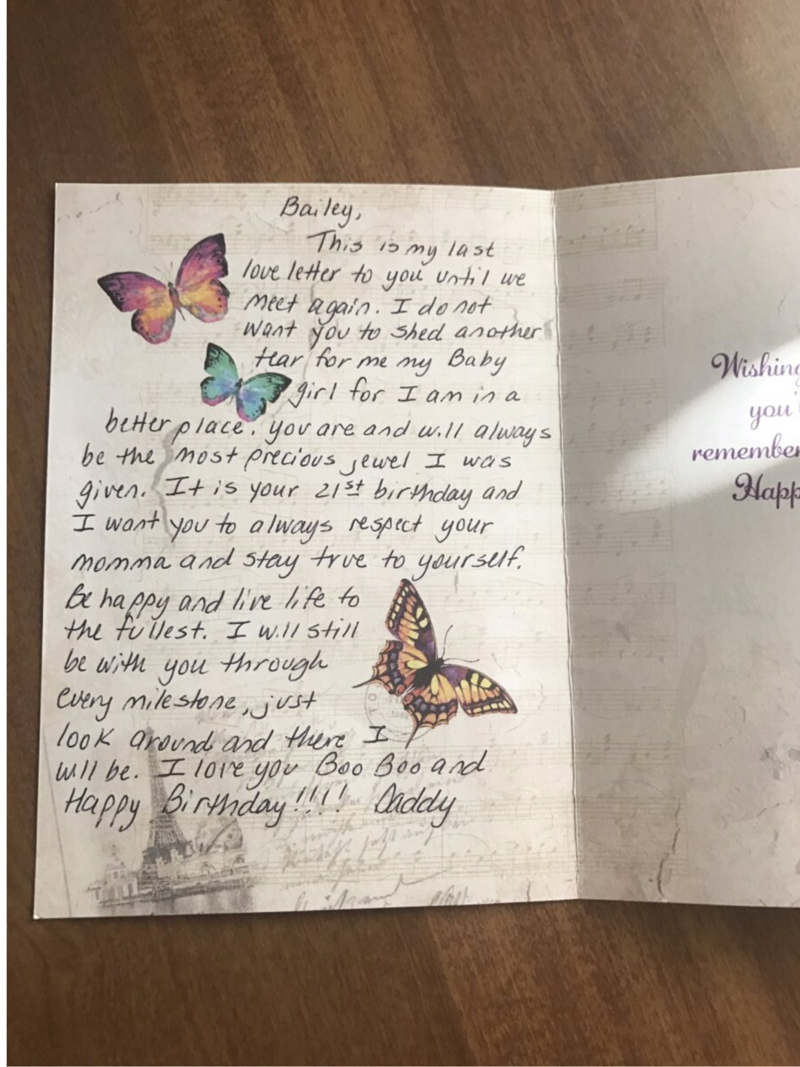 Bailey,
This is my last
love letter to you until we
meet again. I do not
want you to shed another
tear for me my Baby
girl for I am in a
better place. you are and will always
be the most precious jewel I was
given. It is your 21st birthday and
I want you to always respect your
momma and stay true to yourself.
Be happy and live life to
the fullest. I will still
be with you through
every milestone, just
look around and there I
will be. I love you Boo Boo and
Happy Birthday!!!! Daddy
Wishing
you'
remember
Happ